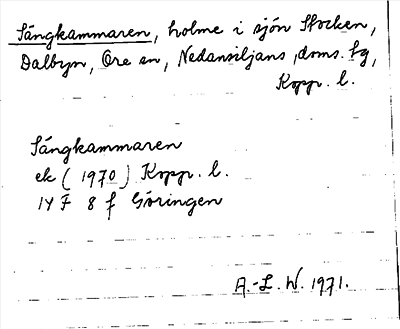 Sängkammaren, holme i sjön Stocken,
Dalbyn, Ore sn, Nedansiljans doms. fg,
Kopp. l.
Sängkammaren
ek (1970) Kopp. l.
14 F 8 f Göringen
A.-L. W. 1971.